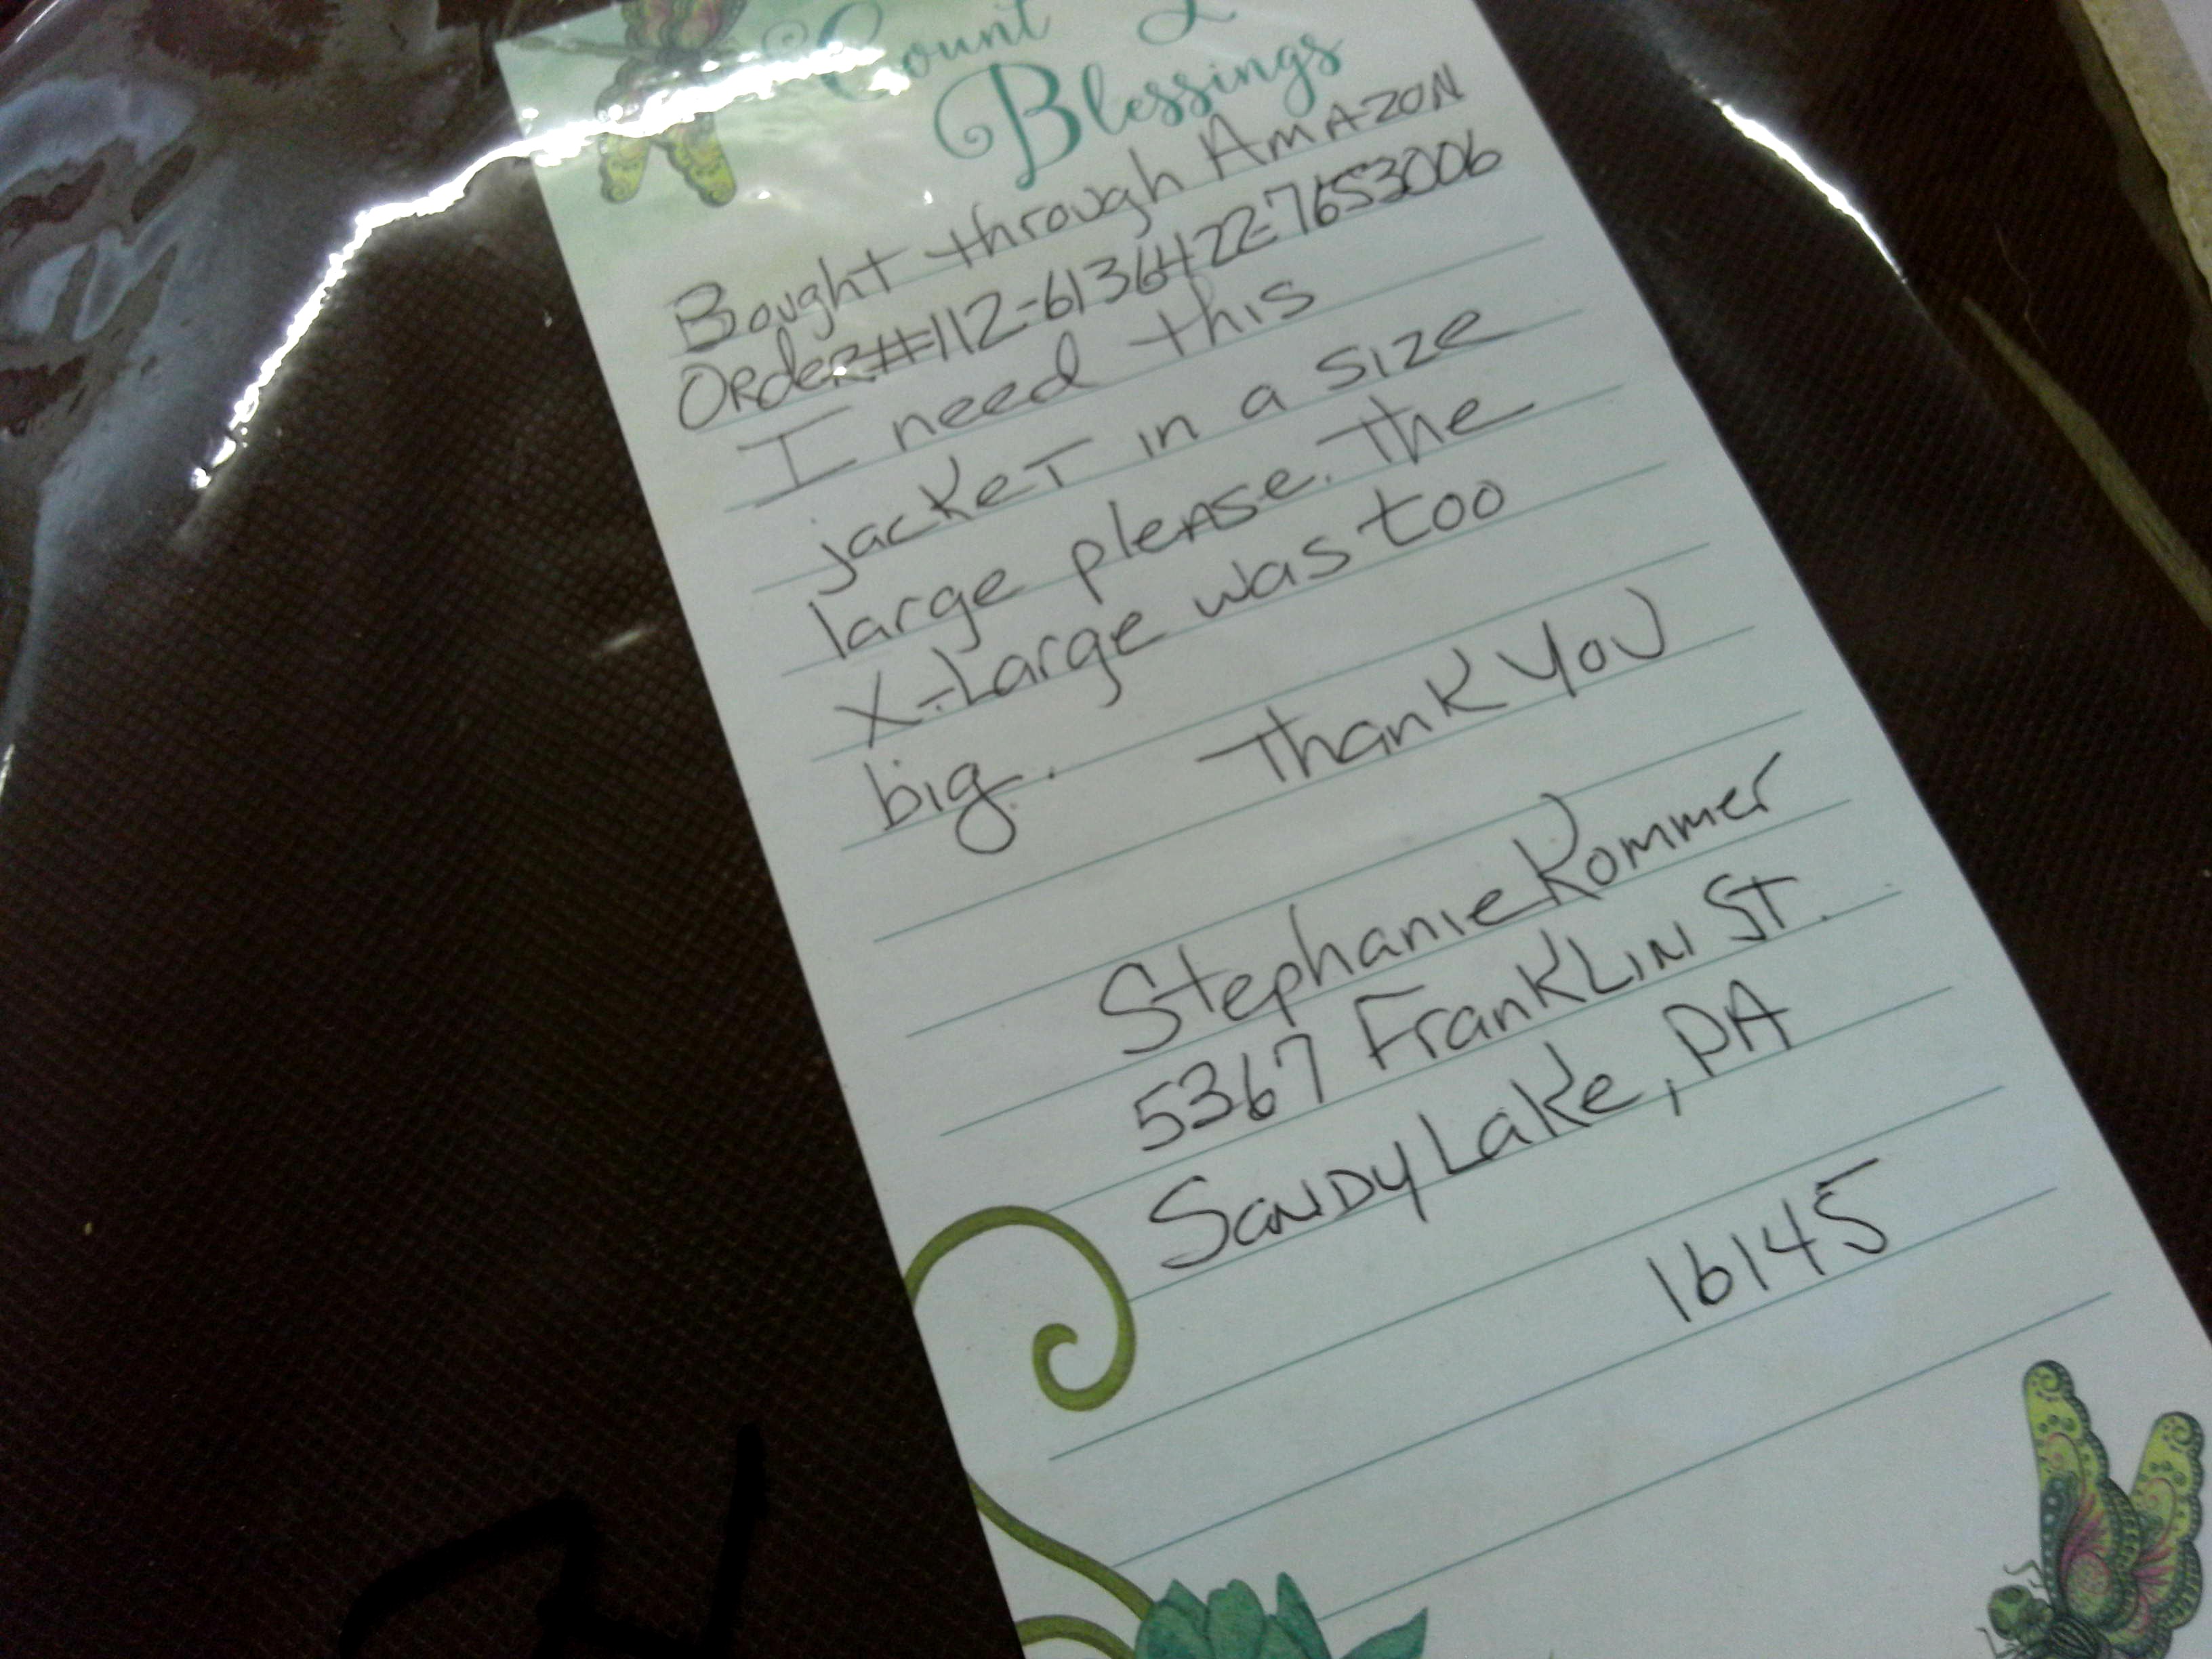 Count
Blessings
Bought through AMAZON
Order#112-6136422-7653006
I need this
jacket in a size
large please. The
X-Large was too
big. Thank You
Stephanie Kommer
5367 Franklin St.
Sandy Lake, PA
16145